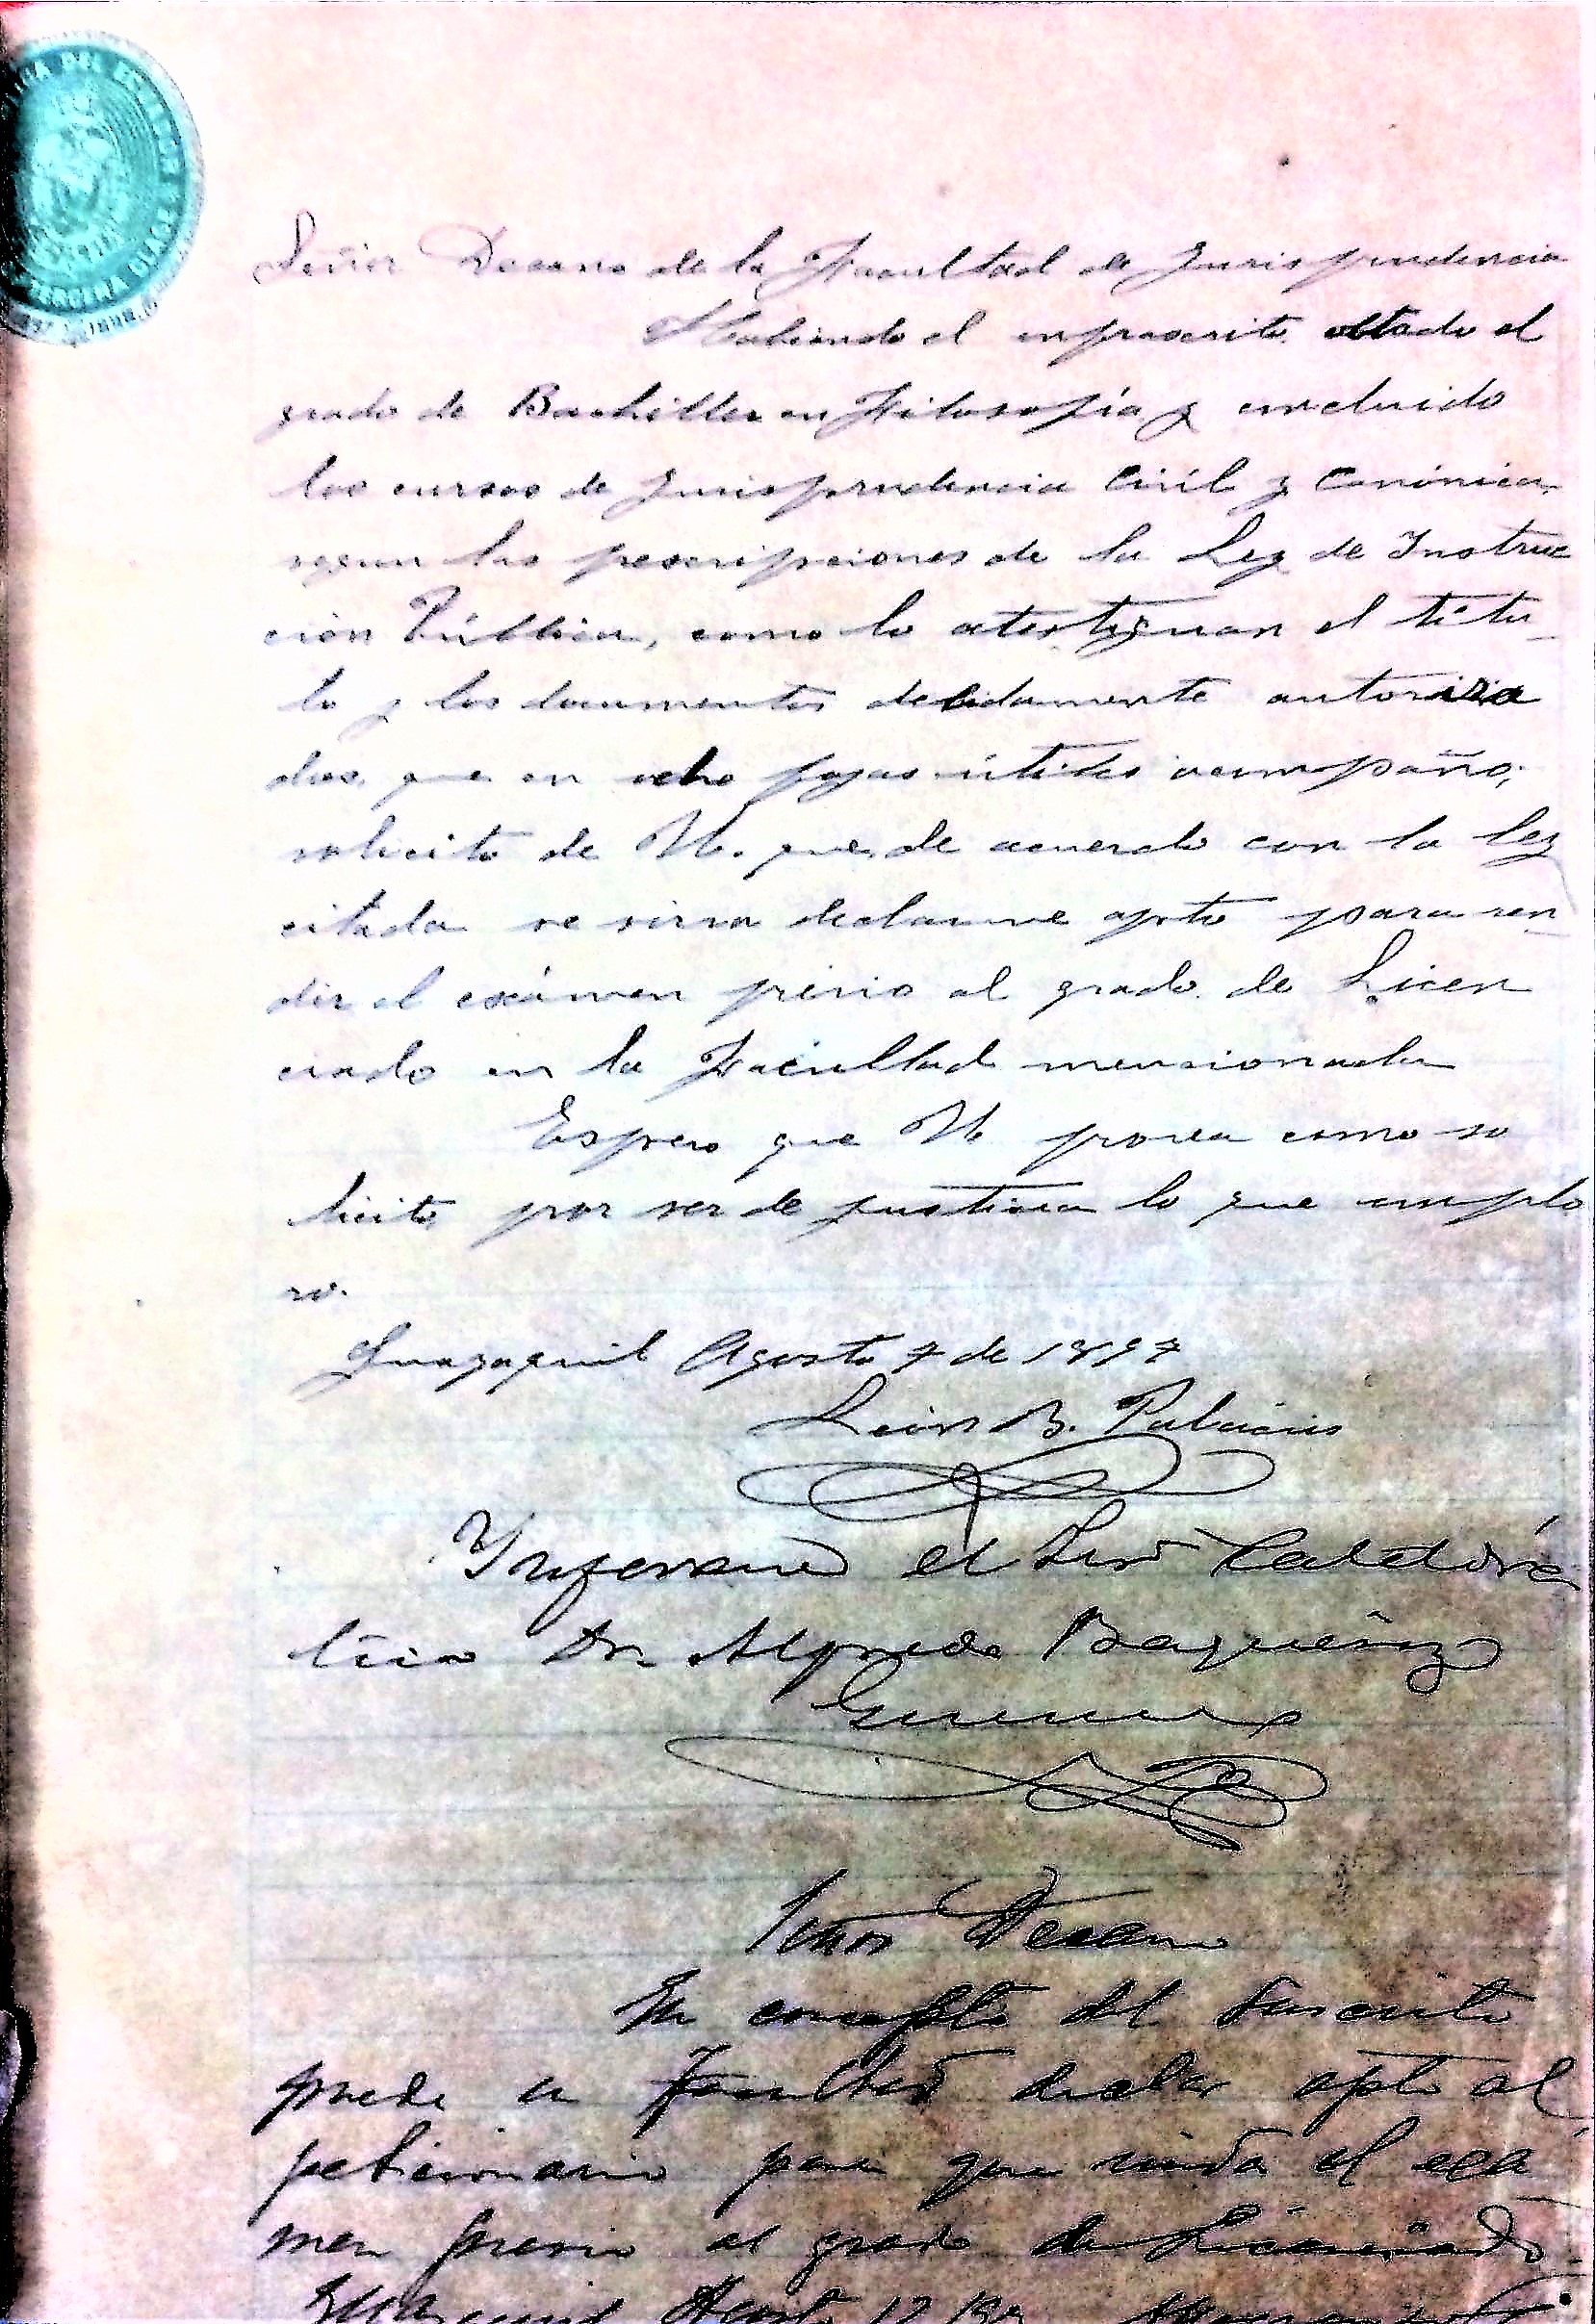 Señor Decano de la Facultad de Jurisprudencia
Habiendo el infrascrito obtado el
grado de Bachiller en Filosofía y concluido
los cursos de Jurisprudencia Civil y Canónica,
segun las prescripciones de la Ley de Instruc
ción Pública, como lo atestiguan el títu-
lo y los documentos debidamente autoriza
dos, que en ocho fojas útiles acompaño;
solicito de U. que, de acuerdo con la ley
citada se sirva declararme apto para ren-
dir el exámen previo al grado de Licen
ciado en la Facultad mencionada
Espero que U. provea como so
licito por ser de justicia lo que implo
ro.
Guayaquil Agosto 7 de 1897
León B. Palacios
Informe el Señor Catedrá
tico Dr. Alfredo Baquerizo
Señor Decano
En concepto del suscrito
puede la Facultad declarar apto al
peticionario para que rinda el exa
men previo al grado de Licenciado.
Guayaquil Agosto 12